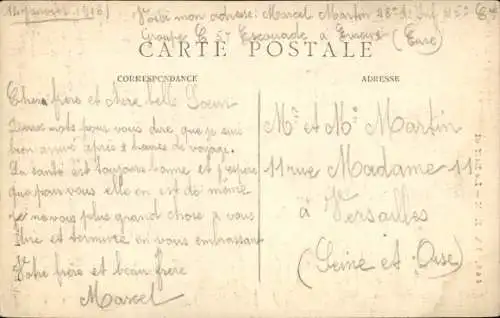 Voici mon adresse: Marcel Martin 28e
Groupe C 57 Escouade à Evreux (Eure)
CARTE POSTALE
CORRESPONDANCE
ADRESSE
Chers frère et chère belle Soeur
Deux mots pour vous dire que je suis
bien arrivé après 2 heures de voyage.
La santé est toujours bonne et j'espère
que pour vous elle en est de même
je ne vous plus grand chose à vous
dire et termine en vous embrassant
Votre frère et beau frère
Marcel
Mr et Me Martin
11 rue Madame 11
à Versailles
(Seine et Oise)